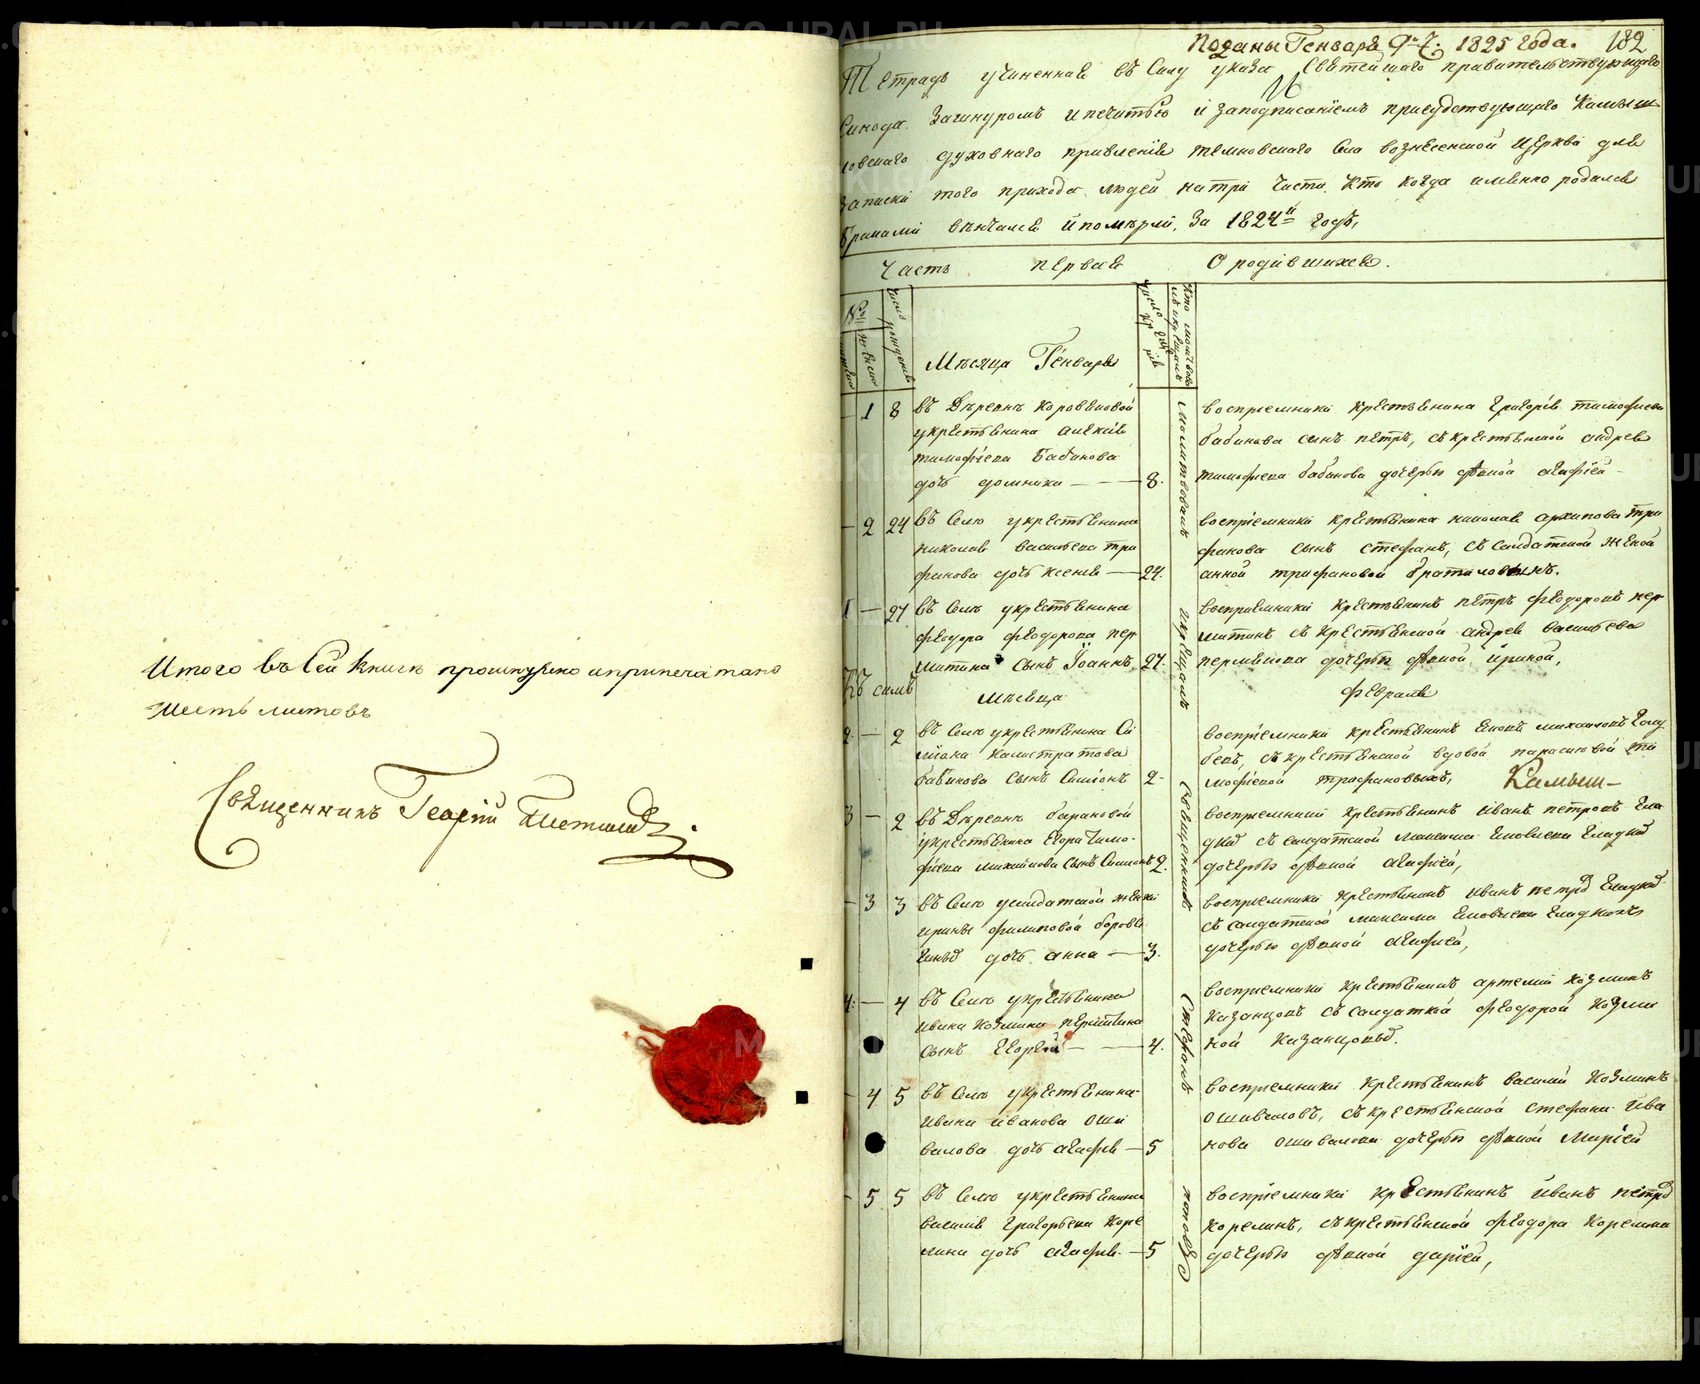 Итого въ сей книгѣ прошнурено и припечатано
шесть листовъ
Священникъ Георгій
Поданы Генваря 9го Ч. 1825 года. 182
Тетрадь учиненная въ силу указа Святейшаго правительствующаго
Синода. Зашнуромъ и печатью и заподписаніемъ присудствующаго Камыш
ловскаго духовнаго правленія темновскаго села вознесенской церкви для
записки того прихода людей натри части, кто когда именно родился
браками венчался и померли. За 1824й годъ,
Часть первая О родившихся.
№
число рожденія
Мѣсяца Генваря
Кто молитвовалъ и крещалъ
1 8 въ Деревнѣ Коровяковой
укрестьянина алексѣя
тимофѣева Бабинова
дочь домника — 8.
воспріемники крестьянина Григорія тимофѣева
бабинова сынъ петръ, съ крестьянской андрея
тимофѣева бабинова дочерью дѣвкой агафіей
2 24 въ Селѣ укрестьянина
николая васильева три
фанова дочь ксенія — 24.
воспріемники крестьянина николая архипова три
фанова сынъ стефанъ, съ салдатской женой
анной трифановой братиловыхъ.
1 — 27 въ Селѣ укрестьянина
феодора феодорова пер
митина сынъ Іоаннъ 27.
воспріемники крестьянинъ петръ феодоровъ пер
митинъ съ крестьянской андрея васильева
пермякова дочерью дѣвкой ириной,
мѣсяца февраля
2 — 2 въ Селѣ укрестьянина Си
міона Калистратова
бабинова сынъ Симіонъ 2
воспріемники крестьянинъ яковъ михаиловъ Голу
бевъ, съ крестьянской вдовой парасковьей ти
мофѣевой трифановыхъ, Камыш—
3 — 2 въ Деревнѣ барановой
укрестьянина Егора тимо-
фѣева михайлова сынъ Симіонъ 2.
воспріемники крестьянинъ иванъ петровъ Гла
дкихъ съ салдатской максима яковлева Гладкихъ
дочерью дѣвкой агафіей,
3 3 въ Селѣ усалдатской женки
ирины филиповой
дочь анна — 3.
воспріемники крестьянинъ иванъ петровъ Гладкихъ
съ салдатской максима яковлева Гладкихъ
дочерью дѣвкой агафіей,
4. — 4 въ Селѣ укрестьянина
ивана козмина пермитина
сынъ Георгій — 4.
воспріемники крестьянинъ артемій козминъ
казанцовъ съ салдаткой феодорой козми
ной казанцовыхъ.
4 5 въ Селѣ укрестьянина
ивана иванова оши
валова дочь агафія — 5
воспріемники крестьянинъ василій козминъ
ошиваловъ, съ крестьянской стефана ива
нова ошивалова дочерью дѣвкой Маріей
5 5 въ Селѣ укрестьянина
василія григорьева коре
лина дочь агафія — 5
воспріемники крестьянинъ иванъ петровъ
корелинъ, съ крестьянской феодора корелина
дочерью дѣвкой даріей,
молитвовалъ
и крещалъ
священникъ
Стефанъ
поповъ